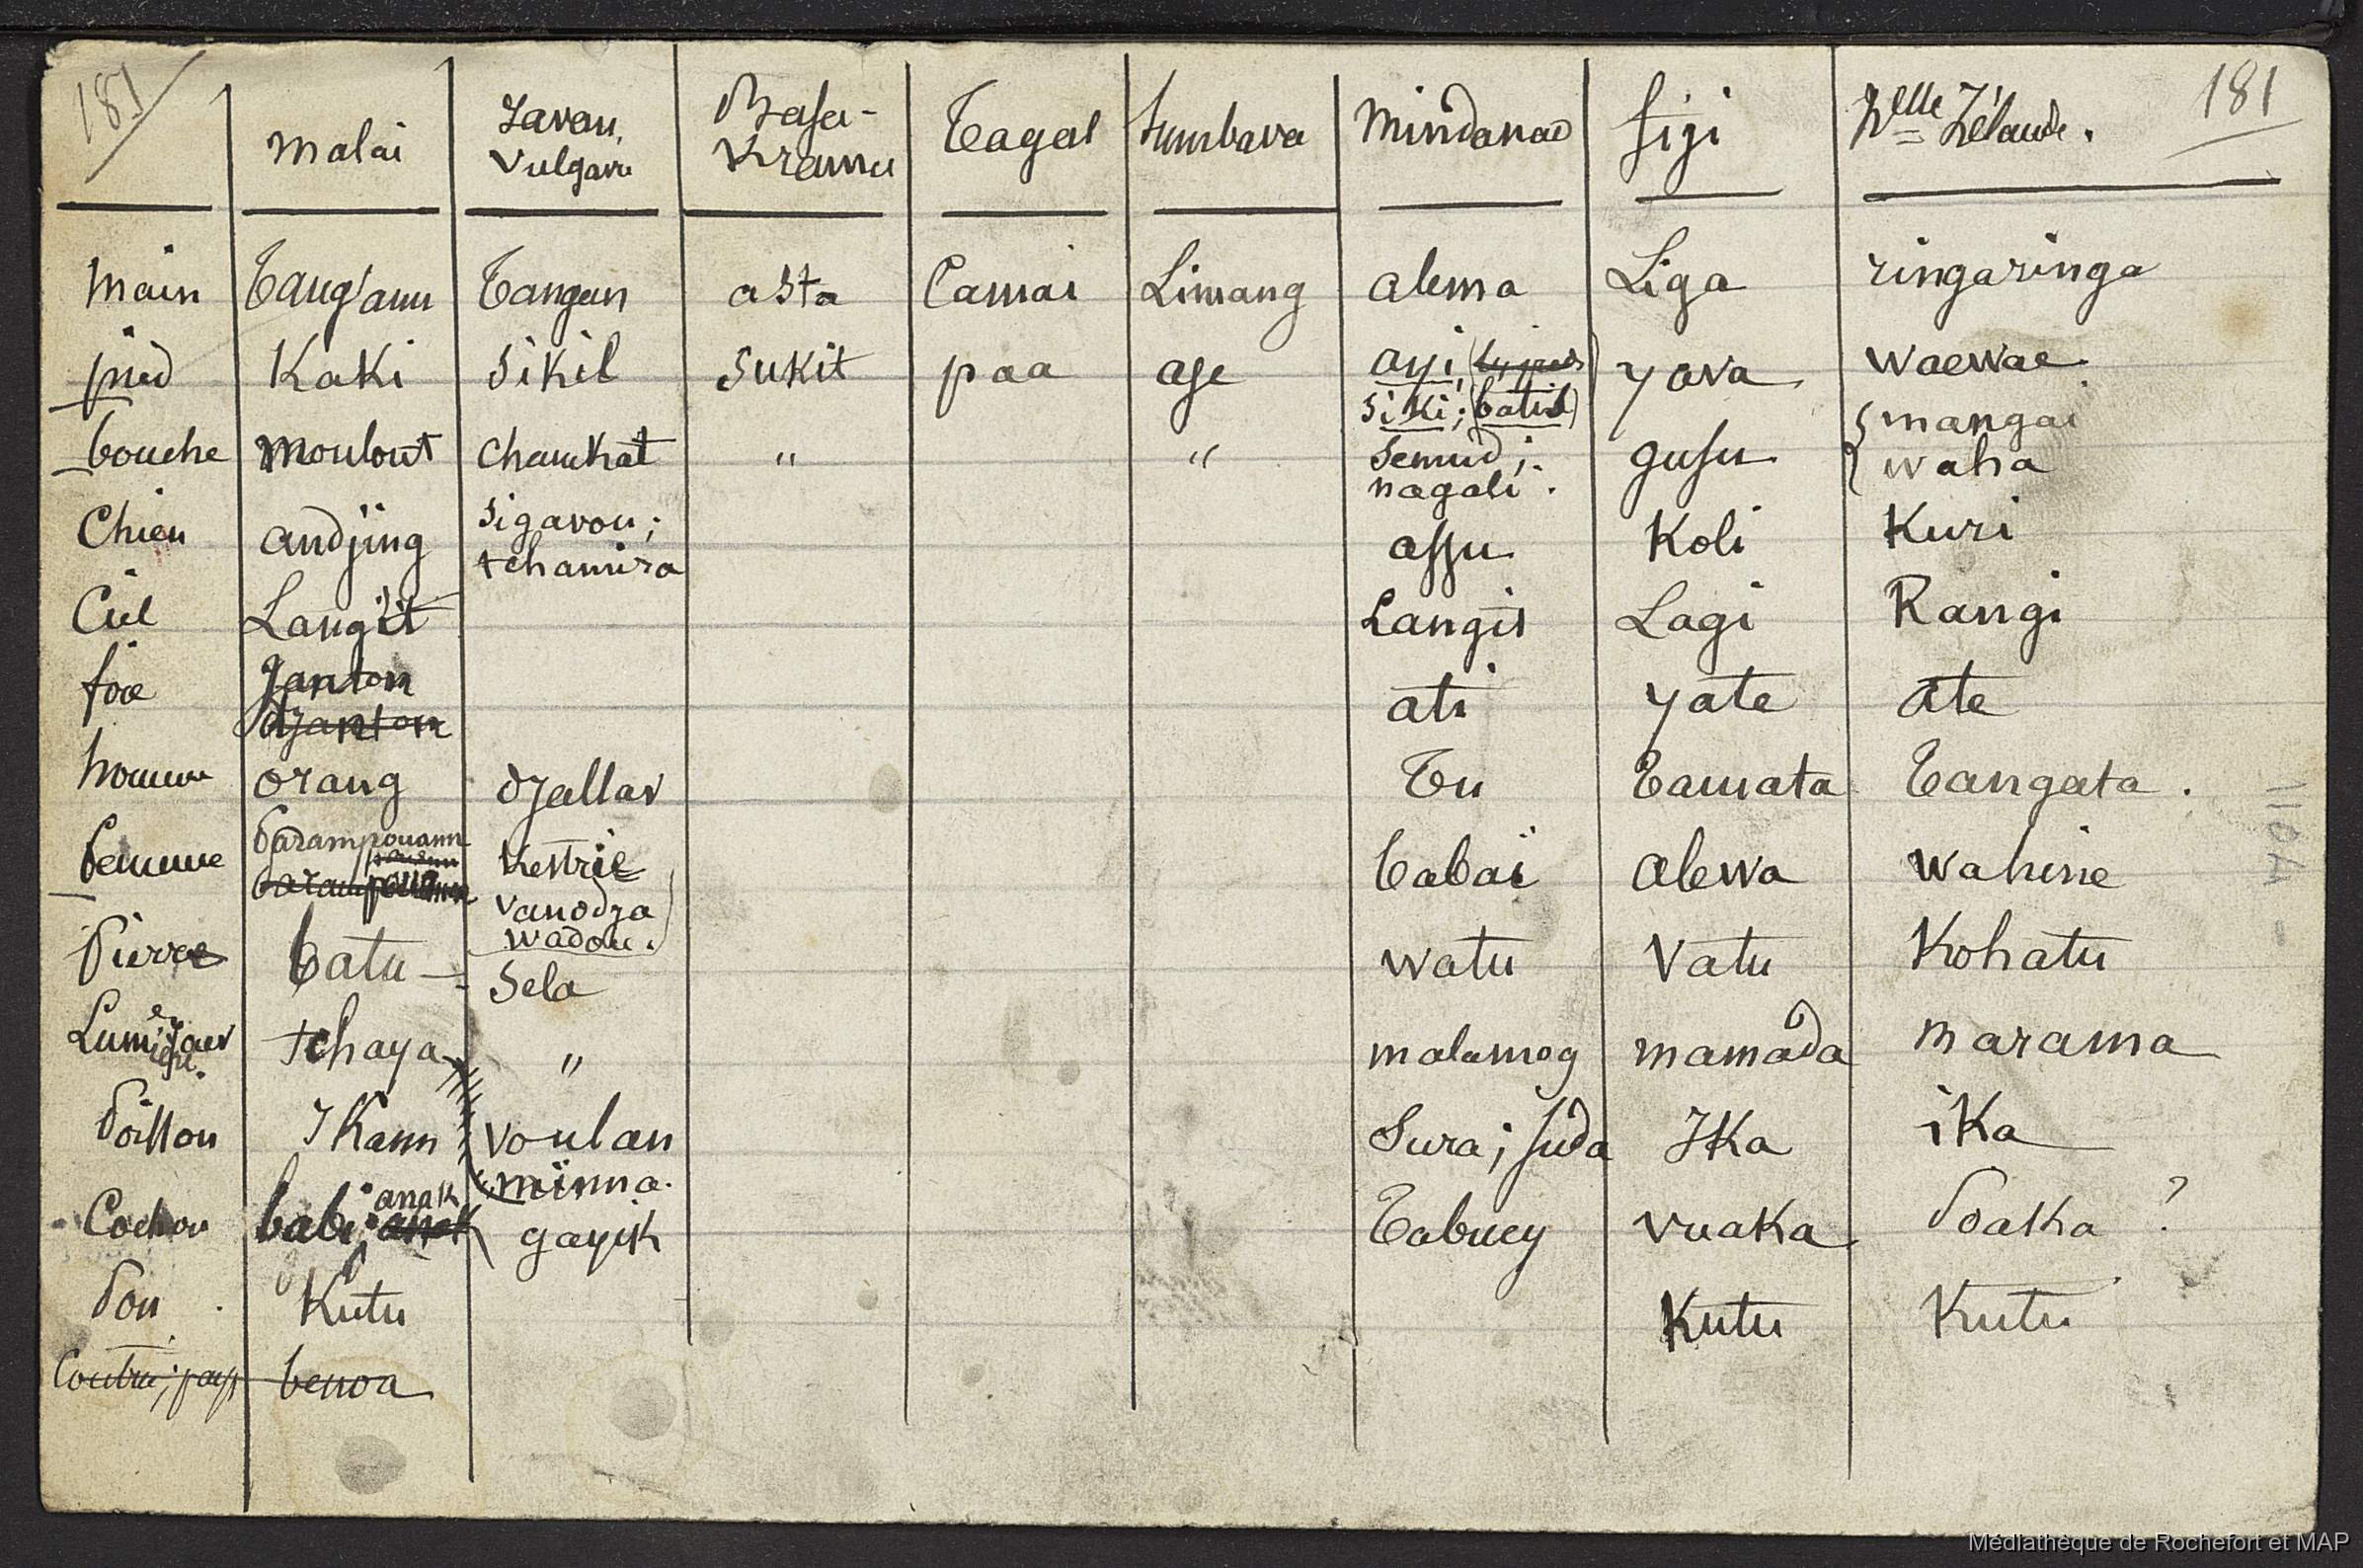 181 malai Javan Vulgaire Basa-Krama Tagal Sumbava Mindanao fiji Nelle Zélande. 181
main Tang'ann Tangan asta Camai Limang alema Liga ringaringa
pied Kaki sikil sukit paa aje ayi, siki; (batis) yava waewae
bouche moulout chankat " " semud; nagali. gusu { mangai waha
Chien andjing sigavou; tchamira assu Koli Kuri
Ciel Langit Langit Lagi Rangi
foie Janton djanton ati yate ate
homme orang djallar Tu Tamata Tangata.
femme Parampouann Kestrie vanodja wadou. babaï alewa wahine
Pierre batu — sela watu Vatu Kohatu
Lumière tchaya " malamag mamada marama
Poisson Ikann voulan minna. Sura; suda Ika ika
Cochon babi; anak gayik Babuey vuaka Poaka ?
Pou. Kutu Kutu Kutu
Contrée; pays benoa
110A -
Médiathèque de Rochefort et MAP